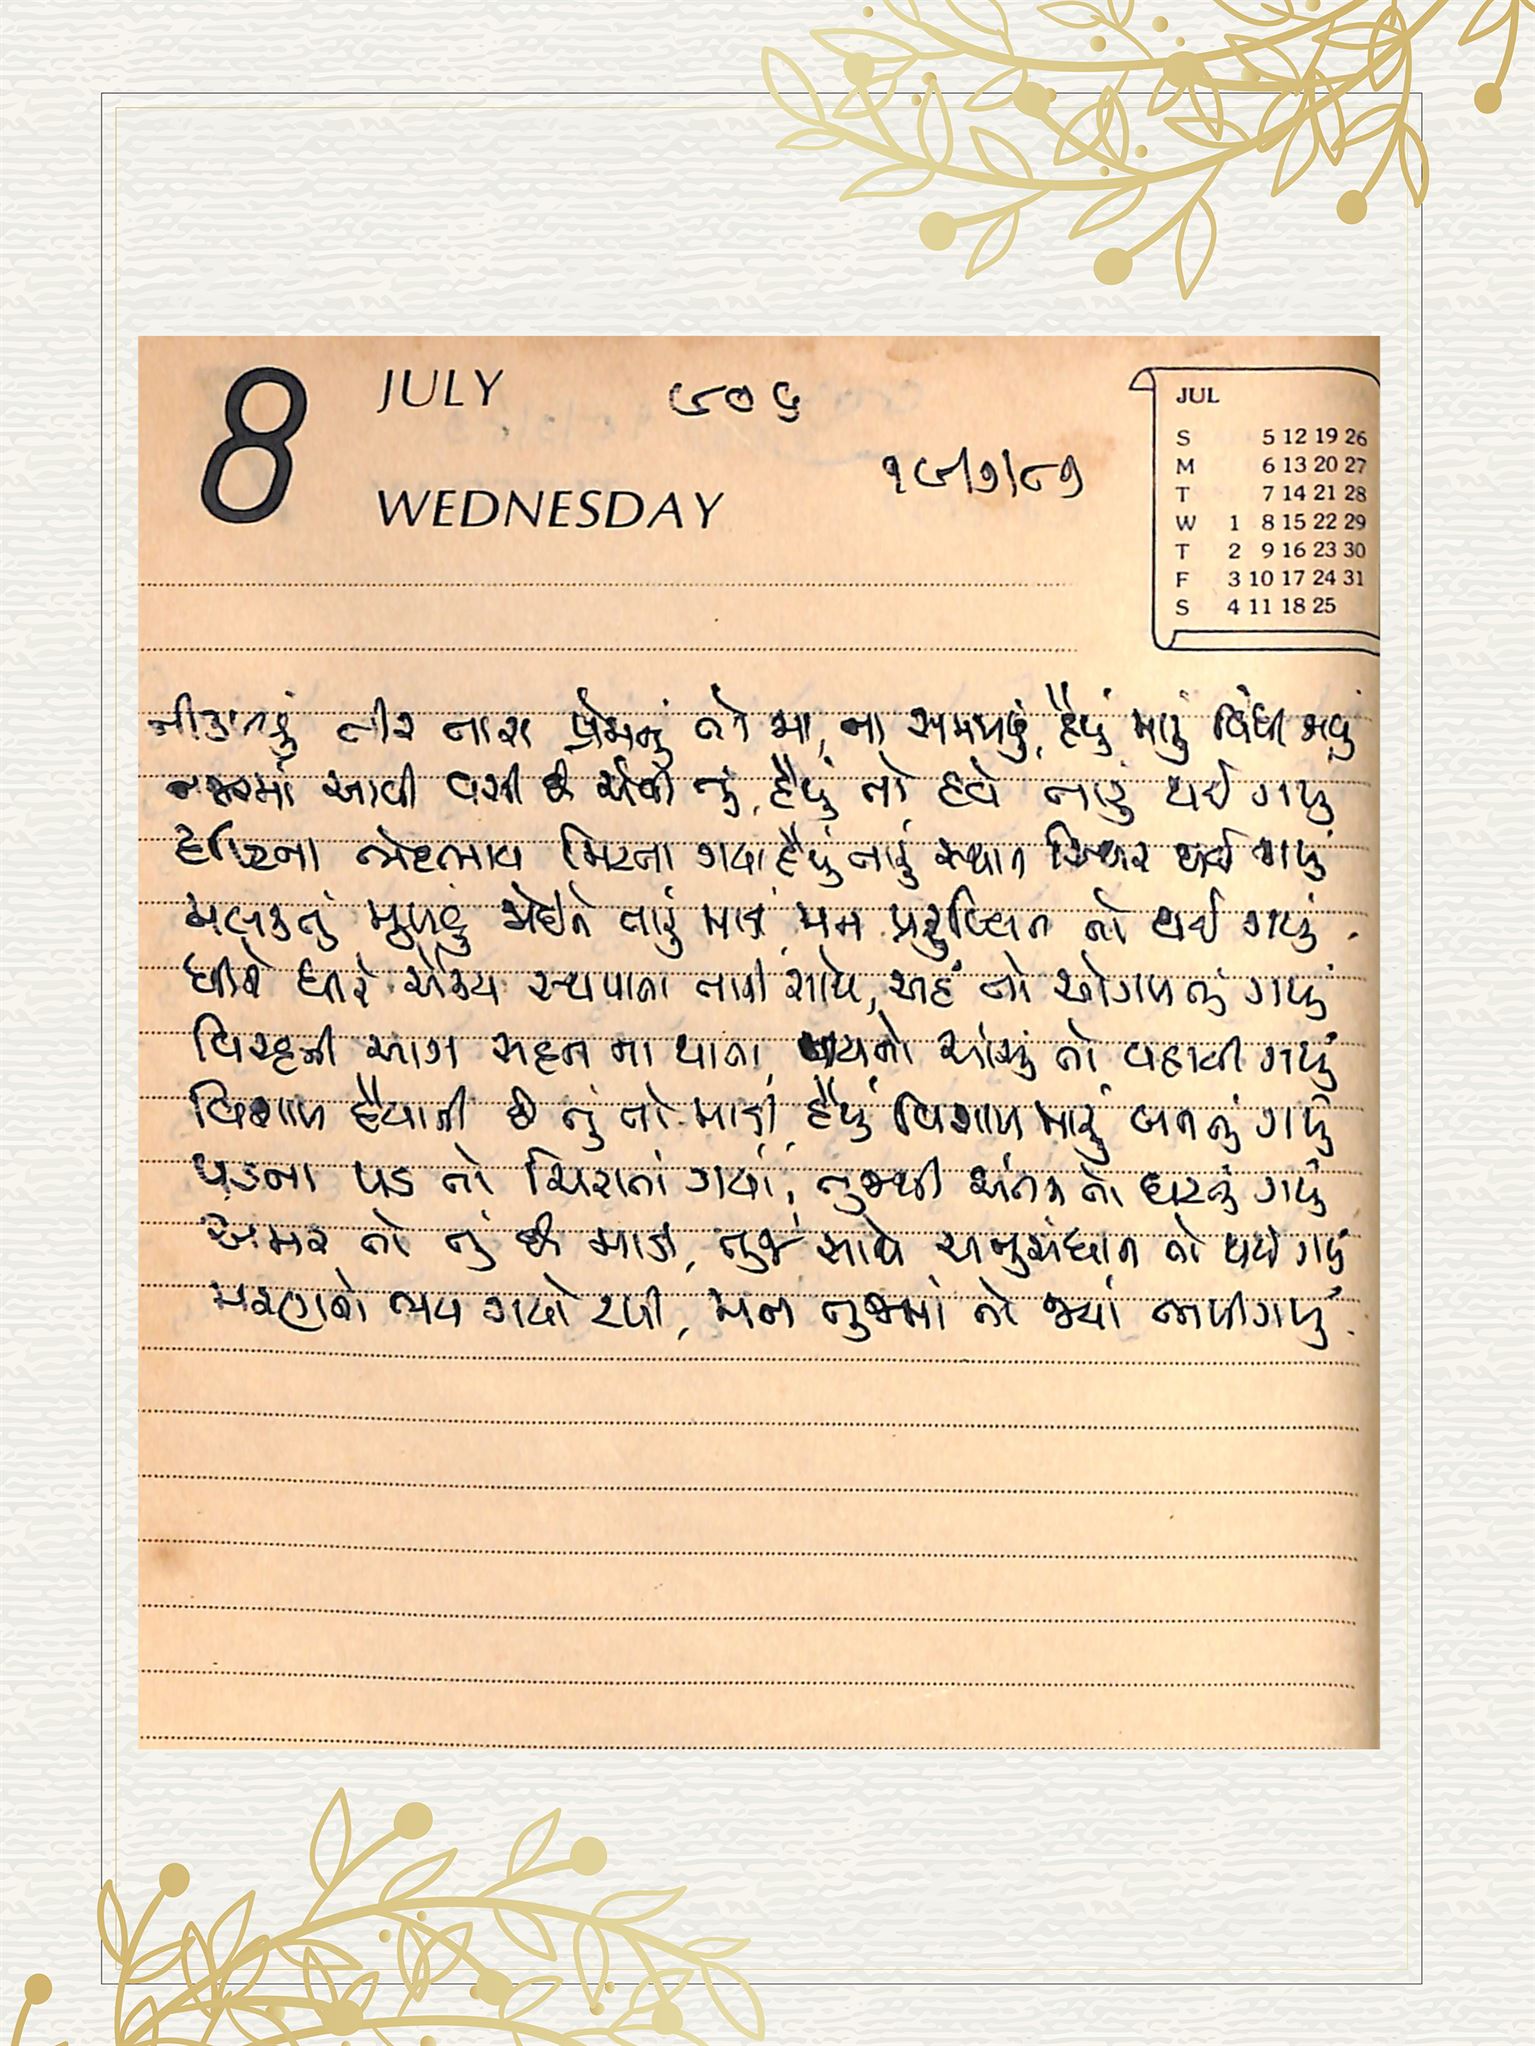 8 JULY ૯૦૬
WEDNESDAY ૧૯/૭/૮૭
JUL
S 5 12 19 26
M 6 13 20 27
T 7 14 21 28
W 1 8 15 22 29
T 2 9 16 23 30
F 3 10 17 24 31
S 4 11 18 25
નીકળ્યું તીર તારા પ્રેમનું તો મા, ના સમજાયું, હૈયું મારું વિંધી ગયું
નજરમાં આવી વસી છે એવી તું, હૈયું તો હવે તારું થઈ ગયું
ભેદભાવ મિટતા ગયા હૈયું તારું સ્થાન સ્થિર થઈ ગયું
મલકતું મુખડું જોઈને તારું માડી, મન પ્રફુલ્લિત તો થઈ ગયું.
ધીરે ધીરે ઐક્ય સ્થપાતા તારી સાથે, અહં તો ઓગળતું ગયું
વિરહની આગ સહન ના થાતા, નયનો આંસુ તો વહાવી ગયું
વિશાળ હૈયાની છે તું તો માડી, હૈયું વિશાળ મારું બનતું ગયું
પડના પડ તો ચિરાતાં ગયાં, તુજથી અંતર તો ઘટતું ગયું
અમર તો તું છે માડી, તુજ સાથે અનુસંધાન તો થઈ ગયું
મરણનો ભય ગયો ટળી, મન તુજમાં તો જ્યાં ભળી ગયું.